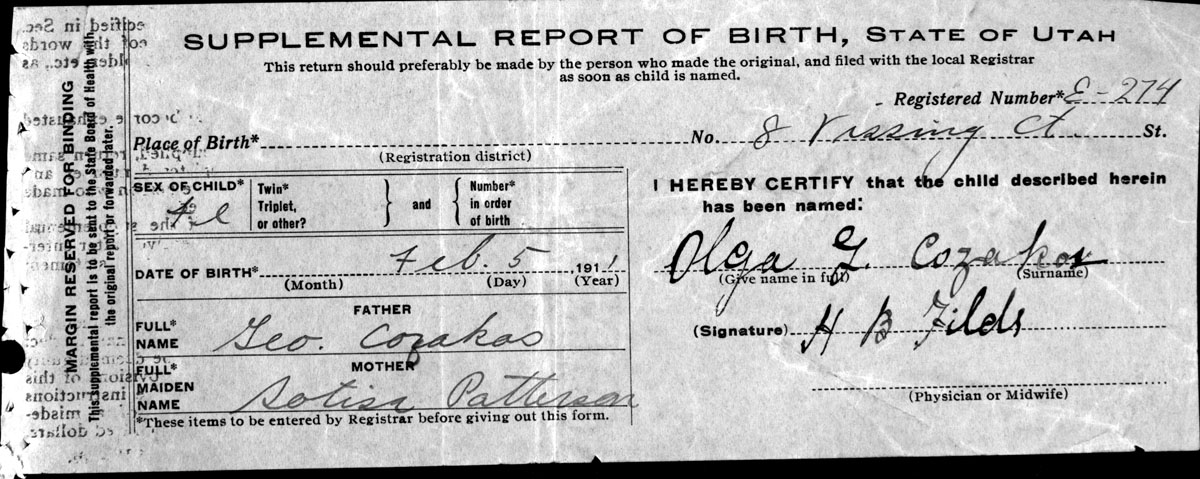 SUPPLEMENTAL REPORT OF BIRTH, STATE OF UTAH
This return should preferably be made by the person who made the original, and filed with the local Registrar
as soon as child is named.
Registered Number* E-274
Place of Birth* No. 8 Vissing Ct. St.
(Registration district)
SEX OF CHILD* Fel
Twin*
Triplet,
or other?
and
Number*
in order
of birth
DATE OF BIRTH* Feb. 5, 1911
(Month) (Day) (Year)
FATHER
FULL*
NAME Geo. Cozakos
MOTHER
FULL*
MAIDEN
NAME Sotisa Patterson
*These items to be entered by Registrar before giving out this form.
I HEREBY CERTIFY that the child described herein
has been named:
Olga G. Cozakos
(Give name in full) (Surname)
(Signature) H B Filds
(Physician or Midwife)
MARGIN RESERVED FOR BINDING
This supplemental report is to be sent to the State Board of Health with
the original report or forwarded later.